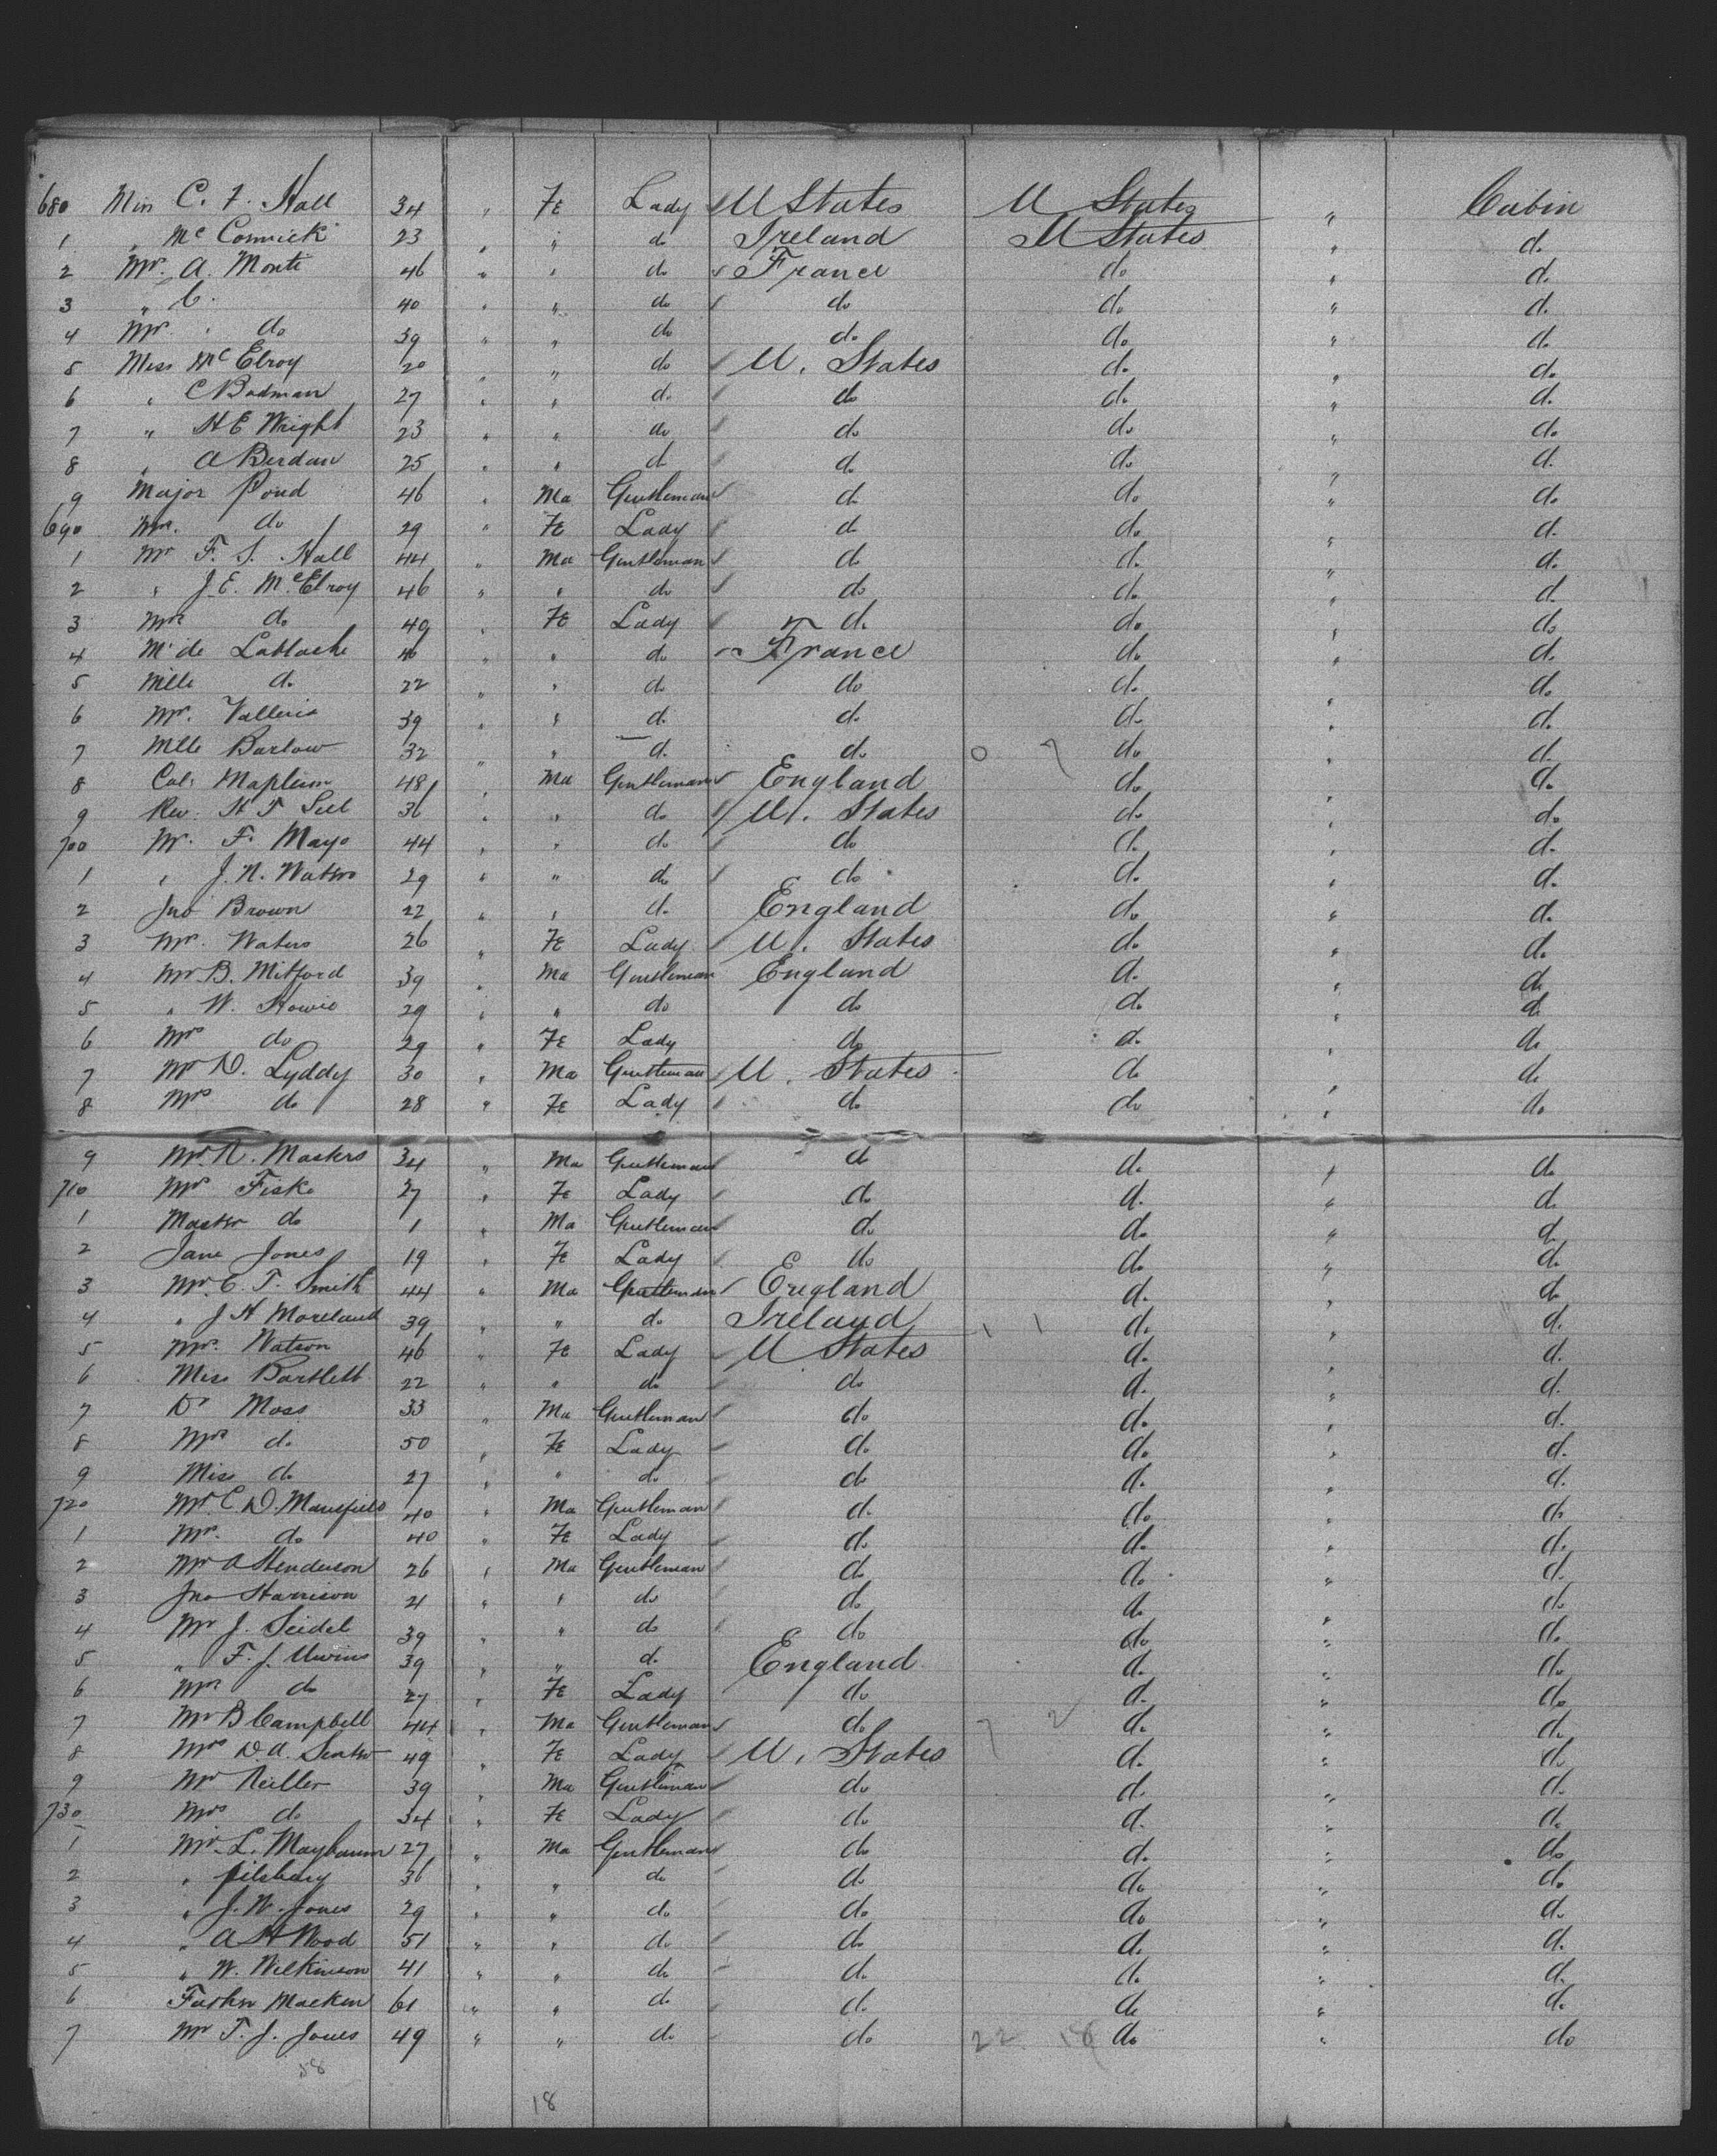 680 Miss C. F. Hall 34 " Fe Lady U States U States " Cabin
1 " McCormick 23 " " do Ireland U States " do
2 Mr. A. Monti 46 " " do France do " do
3 " C. 40 " " do do do " do
4 Mr. " do 39 " " do do do " do
5 Miss McElroy 20 " " do U. States do " do
6 " C Bodman 27 " " do do do " do
7 " H E Wright 23 " " do do do " do
8 " A Berdan 25 " " do do do " do
9 Major Pond 46 " Ma Gentleman do do " do
690 Mrs. do 29 " Fe Lady do do " do
1 Mr F. S. Hall 44 " Ma Gentleman do do " do
2 " J. E. McElroy 46 " " do do do " do
3 Mrs do 49 " Fe Lady do do " do
4 Mde Lablache 46 " " do France do " do
5 Mlle do 22 " " do do do " do
6 Mr. Valleria 39 " " do do do " do
7 Mlle Barlow 32 " " do do do " do
8 Col. Mapleson 48 " Ma Gentleman England do " do
9 Rev. H T 36 " " do U. States do " do
700 Mr. F. Mayo 44 " " do do do " do
1 " J. N. Waters 29 " " do do do " do
2 Jno Brown 22 " " do England do " do
3 Mrs. Waters 26 " Fe Lady U. States do " do
4 Mr B. Mitford 39 " Ma Gentleman England do " do
5 " W. Howie 29 " " do do do " do
6 Mrs do 29 " Fe Lady do do " do
7 Mr D. Lyddy 30 " Ma Gentleman U. States do " do
8 Mrs do 28 " Fe Lady do do " do
9 Mr. N. Masters 34 " Ma Gentleman do do " do
710 Mrs Fiske 27 " Fe Lady do do " do
1 Master do 1 " Ma Gentleman do do " do
2 Jane Jones 19 " Fe Lady do do " do
3 Mr. C. T. Smith 44 " Ma Gentleman England do " do
4 " J H Moreland 39 " " do Ireland do " do
5 Mrs. Watson 46 " Fe Lady U States do " do
6 Miss Bartlett 22 " " do do do " do
7 Dr Moss 33 " Ma Gentleman do do " do
8 Mrs do 50 " Fe Lady do do " do
9 Miss do 27 " " do do do " do
720 Mr C. D. Mansfield 40 " Ma Gentleman do do " do
1 Mrs. do 40 " Fe Lady do do " do
2 Mr A Henderson 26 " Ma Gentleman do do " do
3 Jno Harrison 21 " " do do do " do
4 Mr J. Seidel 39 " " do do do " do
5 " F. J. Unwins 39 " " do England do " do
6 Mrs do 27 " Fe Lady do do " do
7 Mr B Campbell 44 " Ma Gentleman do 7 2 do " do
8 Mrs D. A. 49 " Fe Lady U. States do " do
9 Mr Neiller 39 " Ma Gentleman do do " do
730 Mrs do 34 " Fe Lady do do " do
1 Mr. L. Maybaum 27 " Ma Gentleman do do " do
2 " Pilsbury 36 " " do do do " do
3 " J. W. Jones 29 " " do do do " do
4 " A H Wood 51 " " do do do " do
5 " W. Wilkinson 41 " " do do do " do
6 Father Macken 61 " " do do do " do
7 Mr T. J. Jones 49 " " do do 22 18 do " do
58
18